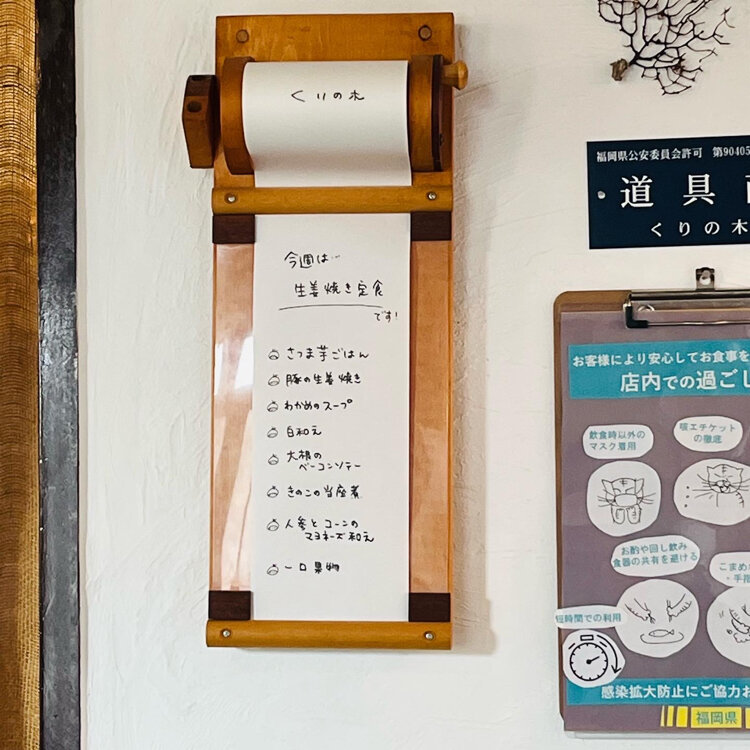 くりの木
今週は…
生姜焼き定食
です!
さつま芋ごはん
豚の生姜焼き
わかめのスープ
白和え
大根の
ベーコンソテー
きのこの当座煮
人参とコーンの
マヨネーズ和え
一口果物
福岡県公安委員会許可 第90405
道具
くりの木
お客様により安心してお食事を
店内での過ごし
飲食時以外の
マスク着用
咳エチケット
の徹底
お酌や回し飲み
食器の共有を避ける
こまめ
・手指
短時間での利用
感染拡大防止にご協力お
福岡県